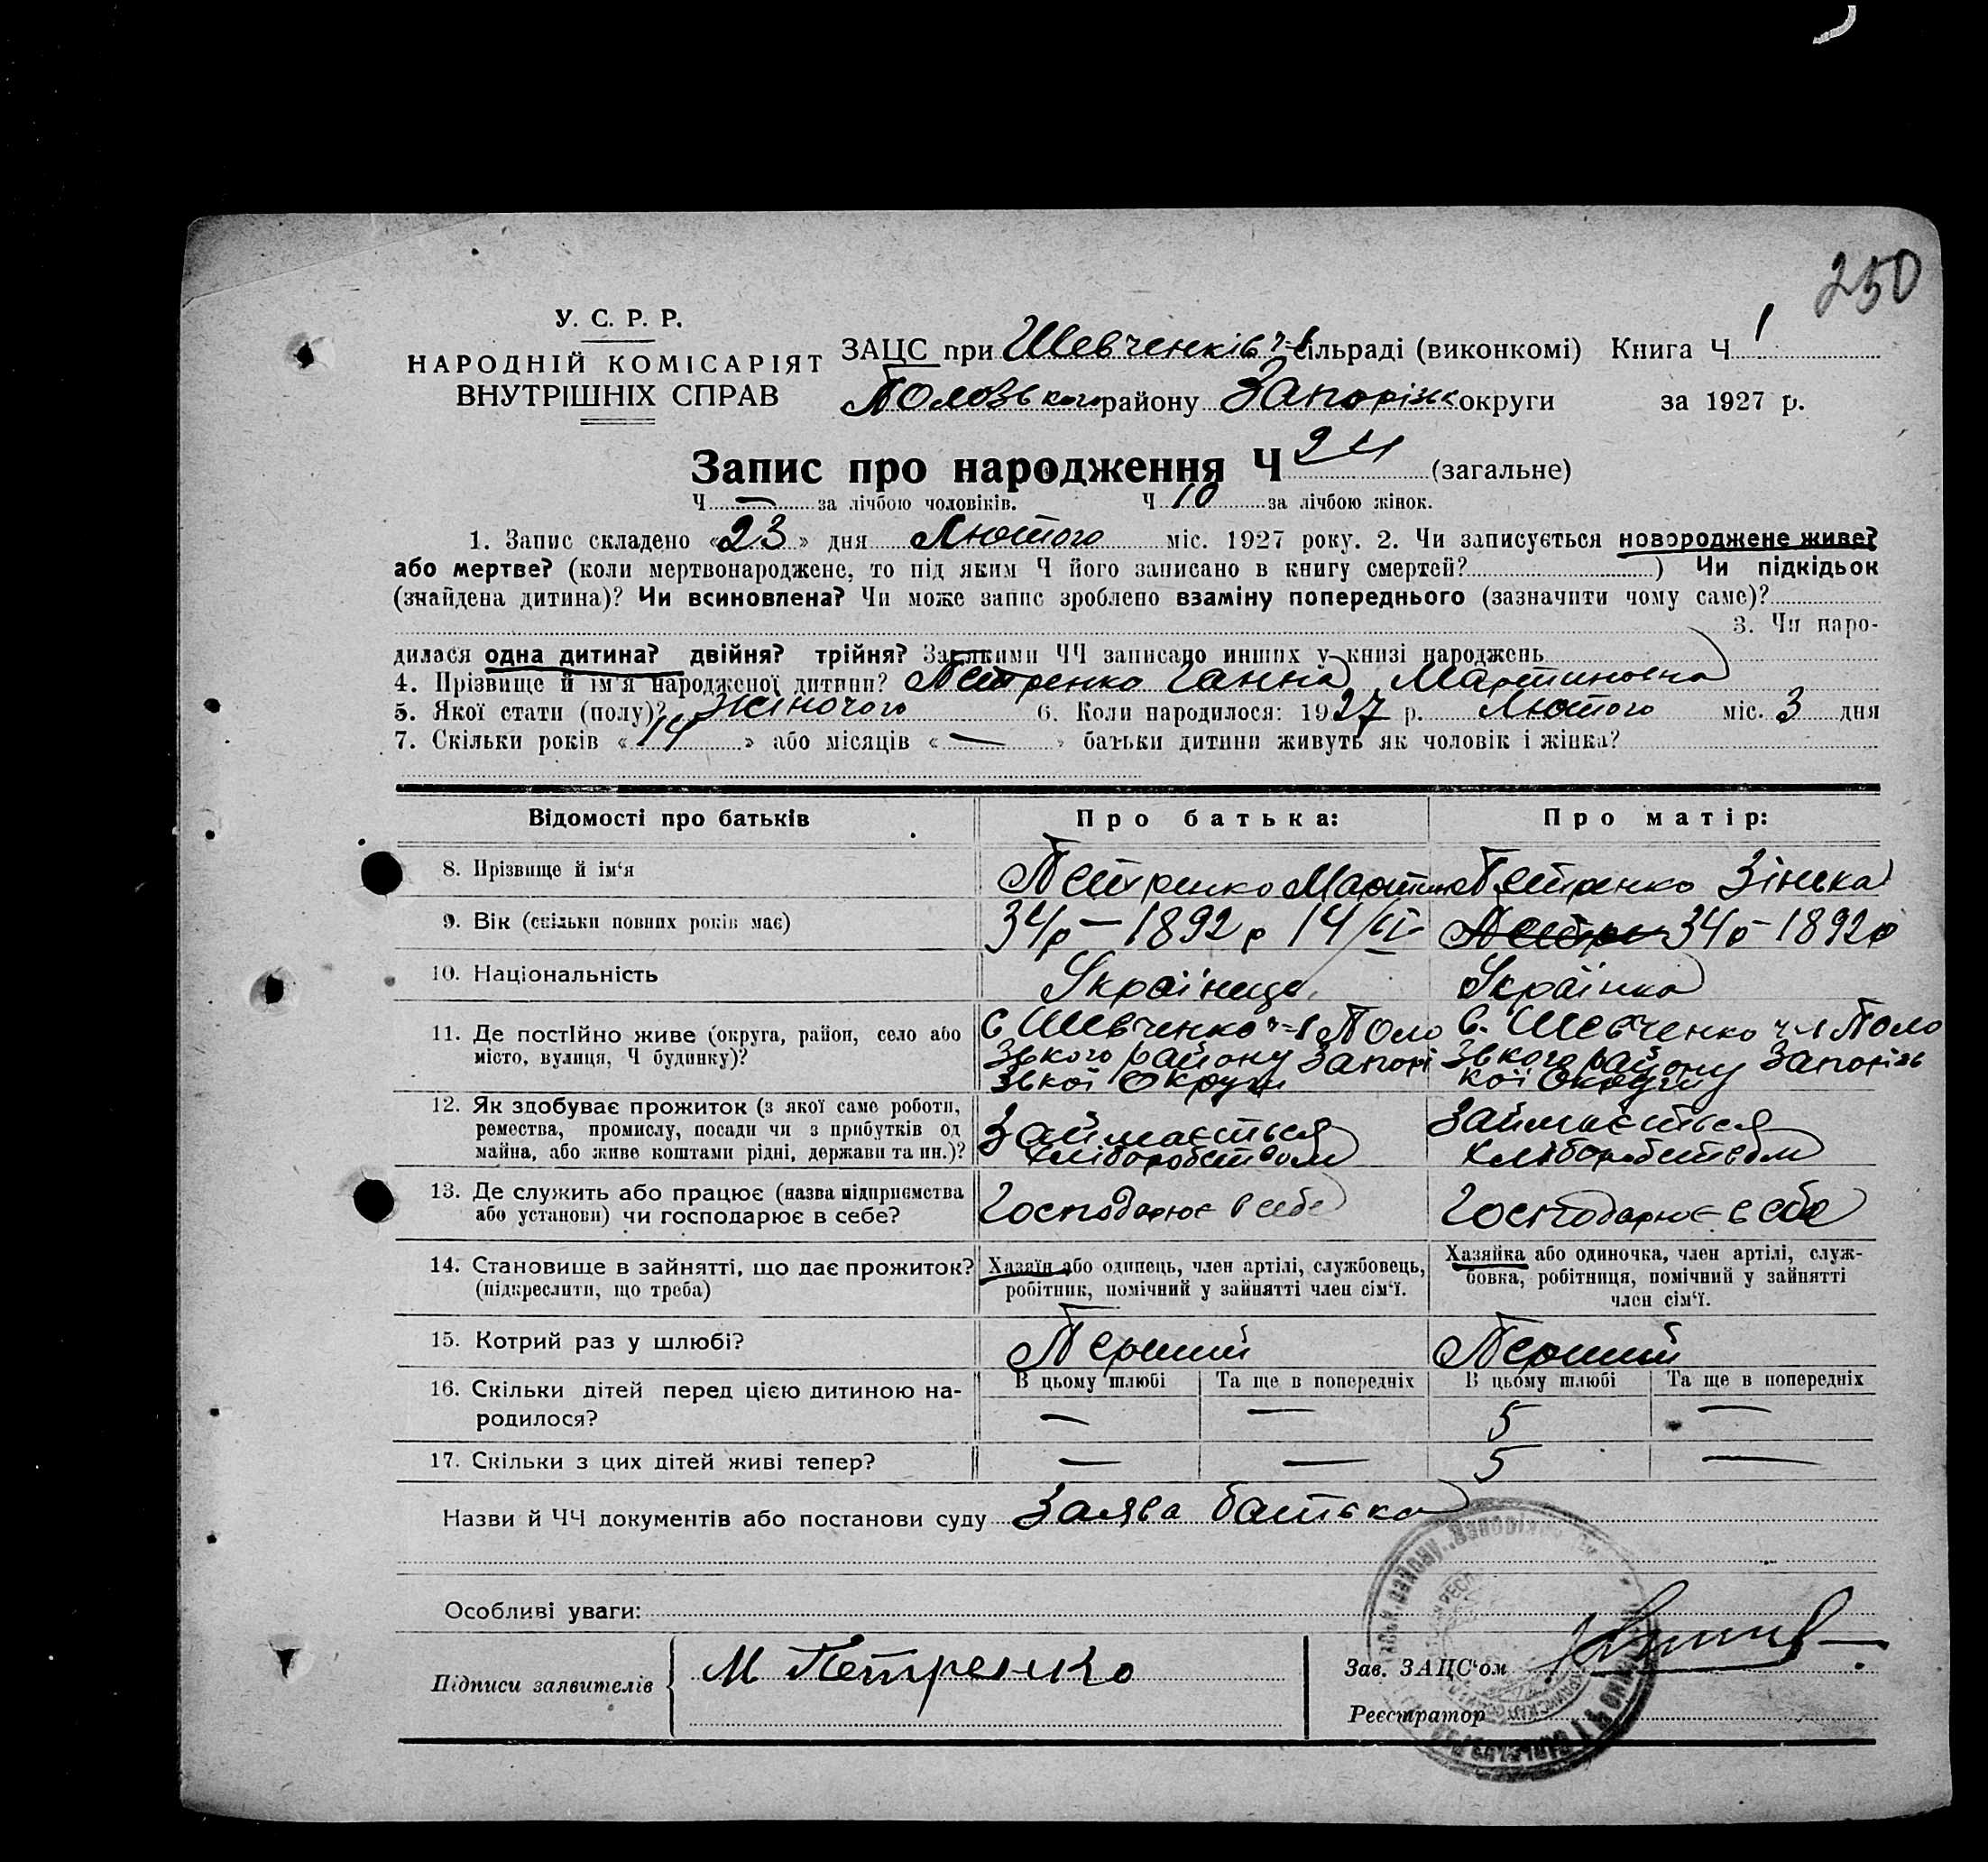 250
У. С. Р. Р.
НАРОДНІЙ КОМІСАРІЯТ
ВНУТРІШНІХ СПРАВ
ЗАЦС при Шевченків ч-1 сільраді (виконкомі) Книга Ч 1
Пологівського району Запоріжж округи за 1927 р.
Запис про народження Ч 24 (загальне)
Ч — за лічбою чоловіків. Ч 10 за лічбою жінок.
1. Запис складено «23» дня Лютого міс. 1927 року. 2. Чи записується новороджене живе?
або мертве? (коли мертвонароджене, то під яким Ч його записано в книгу смертей? ) Чи підкідьок
(знайдена дитина)? Чи всиновлена? Чи може запис зроблено взаміну попереднього (зазначити чому саме)?
3. Чи наро-
дилася одна дитина? двійня? трійня? За якими ЧЧ записано инших у книзі народжень
4. Прізвище й ім'я народженої дитини? Петренко Ганна Мартиновна
5. Якої статі (полу)? жіночого 6. Коли народилося: 1927 р. Лютого міс. 3 дня
7. Скільки років «14» або місяців «—» батьки дитини живуть як чоловік і жінка?
Відомості про батьків Про батька: Про матір:
8. Прізвище й ім'я Петренко Мартин Петренко Зінька
9. Вік (скільки повних років має) 34р — 1892р 14/ІV 34р - 1892р
10. Національність Українець Українка
11. Де постійно живе (округа, район, село або
місто, вулиця, Ч будинку)?
С Шевченко ч-1 Поло
звкого району Запорі
звкої Округи
С. Шевченко ч-1 Поло
звкого району Запорізь
кої Округи
12. Як здобуває прожиток (з якої саме роботи,
ремества, промислу, посади чи з прибутків од
майна, або живе коштами рідні, держави та ин.)?
Займається
хліборобством
Займається
хліборобством
13. Де служить або працює (назва підприємства
або установи) чи господарює в себе?
Господарює в себе
Господарює в себе
14. Становище в зайнятті, що дає прожиток?
(підкреслити, що треба)
Хазяїн або одинець, член артілі, службовець,
робітник, помічний у зайнятті член сім'ї.
Хазяйка або одиночка, член артілі, служ-
бовка, робітниця, помічний у зайнятті
член сім'ї.
15. Котрий раз у шлюбі? Перший Перший
16. Скільки дітей перед цією дитиною на-
родилося?
В цьому шлюбі Та ще в попередніх В цьому шлюбі Та ще в попередніх
— — 5 —
17. Скільки з цих дітей живі тепер? — — 5 —
Назви й ЧЧ документів або постанови суду Заява батька
Особливі уваги:
Підписи заявителів М Петренко
Зав. ЗАЦС'ом
Реєстратор